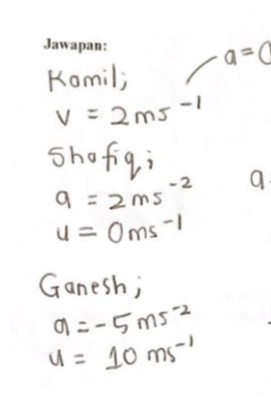 Jawapan:
a=0
Kamil;
v = 2ms⁻¹
Shafiq;
a = 2ms⁻²
a
u = 0ms⁻¹
Ganesh;
a = -5ms⁻²
u = 10 ms⁻¹